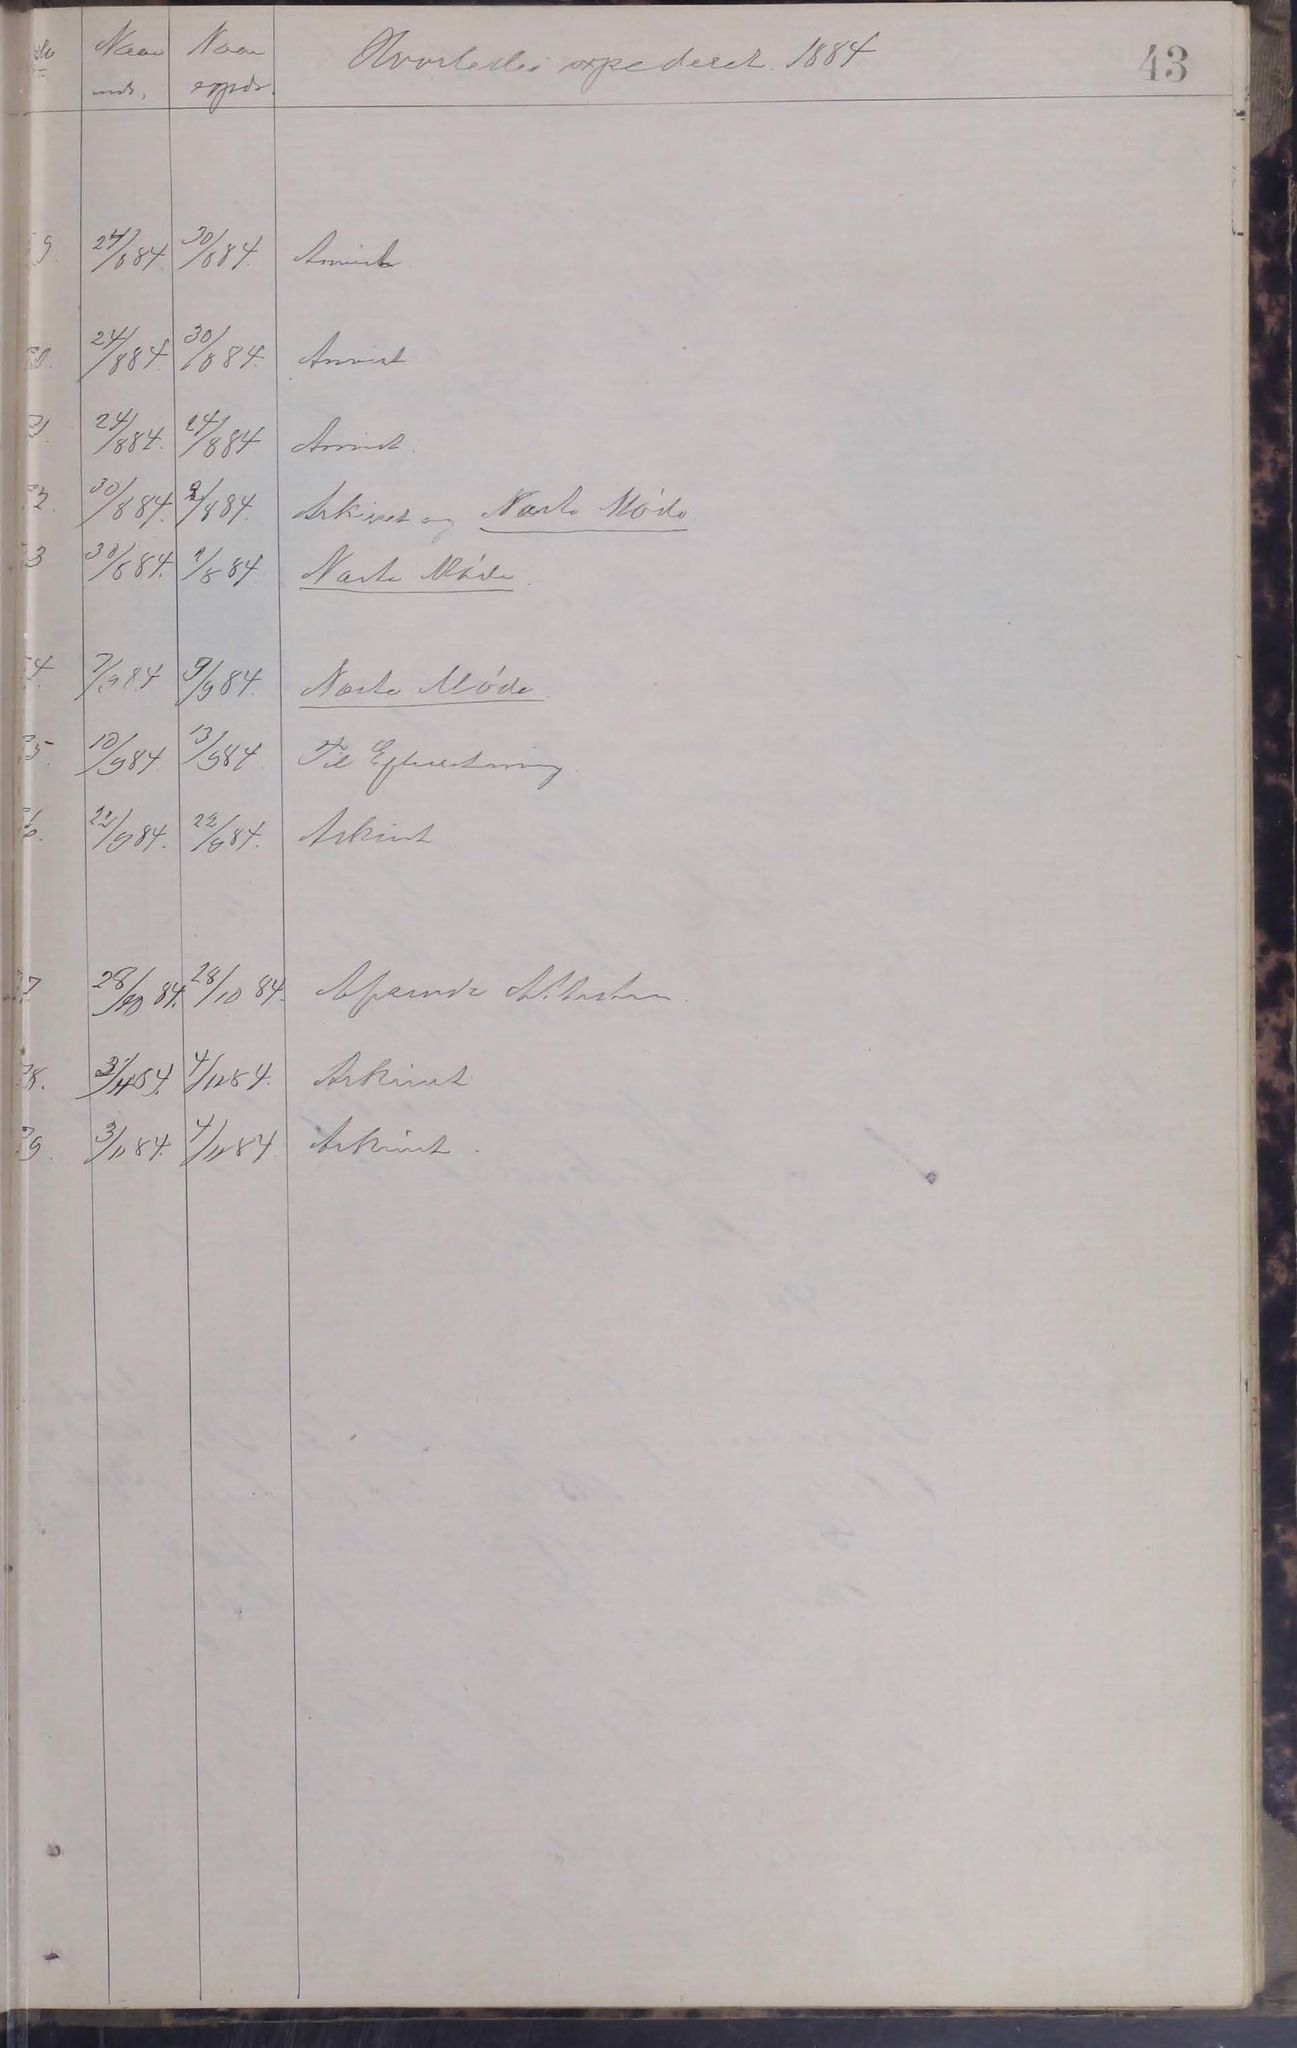 No Naar Naar Hvorledes expederet. 1884 43
indk. expedr.
9. 24/8 84. 30/8 84. Anvist
20. 24/8 84. 30/8 84. Anvist
21. 24/8 84. 24/8 84 Anvist.
22. 30/8 84. 2/8 84. Arkivet og Næste Møde
23 30/8 84. 2/8 84 Næste Møde.
24. 7/9 84 9/9 84. Næste Møde
25. 10/9 84 13/9 84 Til Efterretning.
26. 22/9 84. 22/9 84. Arkivet
27 28/10 84. 28/10 84. Afsendt Attesten.
28. 3/11 84. 4/11 84. Arkivet
29. 3/11 84. 4/11 84 Arkivet.